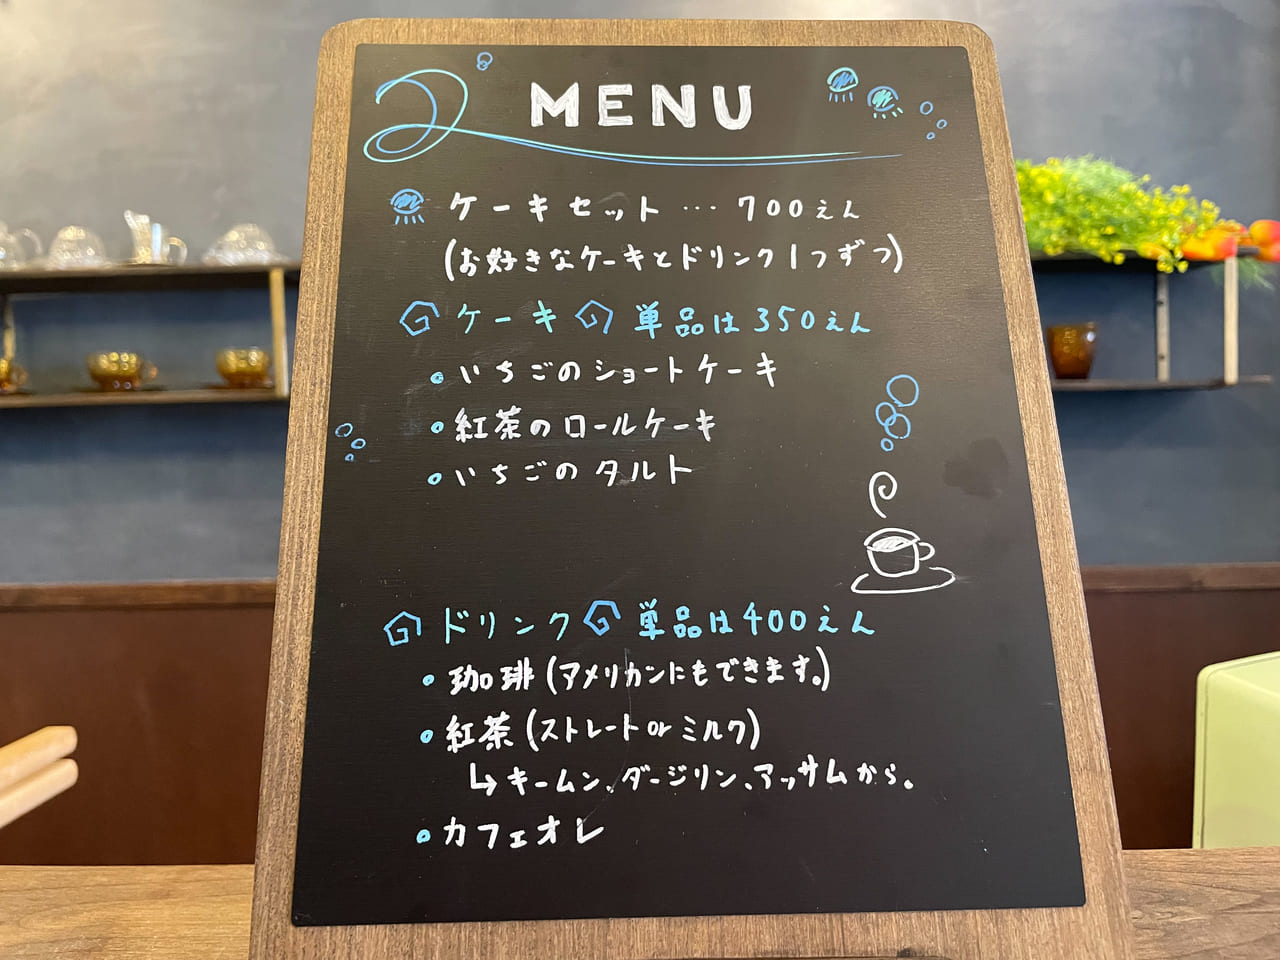 MENU
ケーキセット…700えん
(お好きなケーキとドリンク1つずつ)
ケーキ 単品は350えん
・いちごのショートケーキ
・紅茶のロールケーキ
・いちごのタルト
ドリンク 単品は400えん
・珈琲(アメリカンにもできます。)
・紅茶(ストレートorミルク)
↳キームン、ダージリン、アッサムから。
・カフェオレ